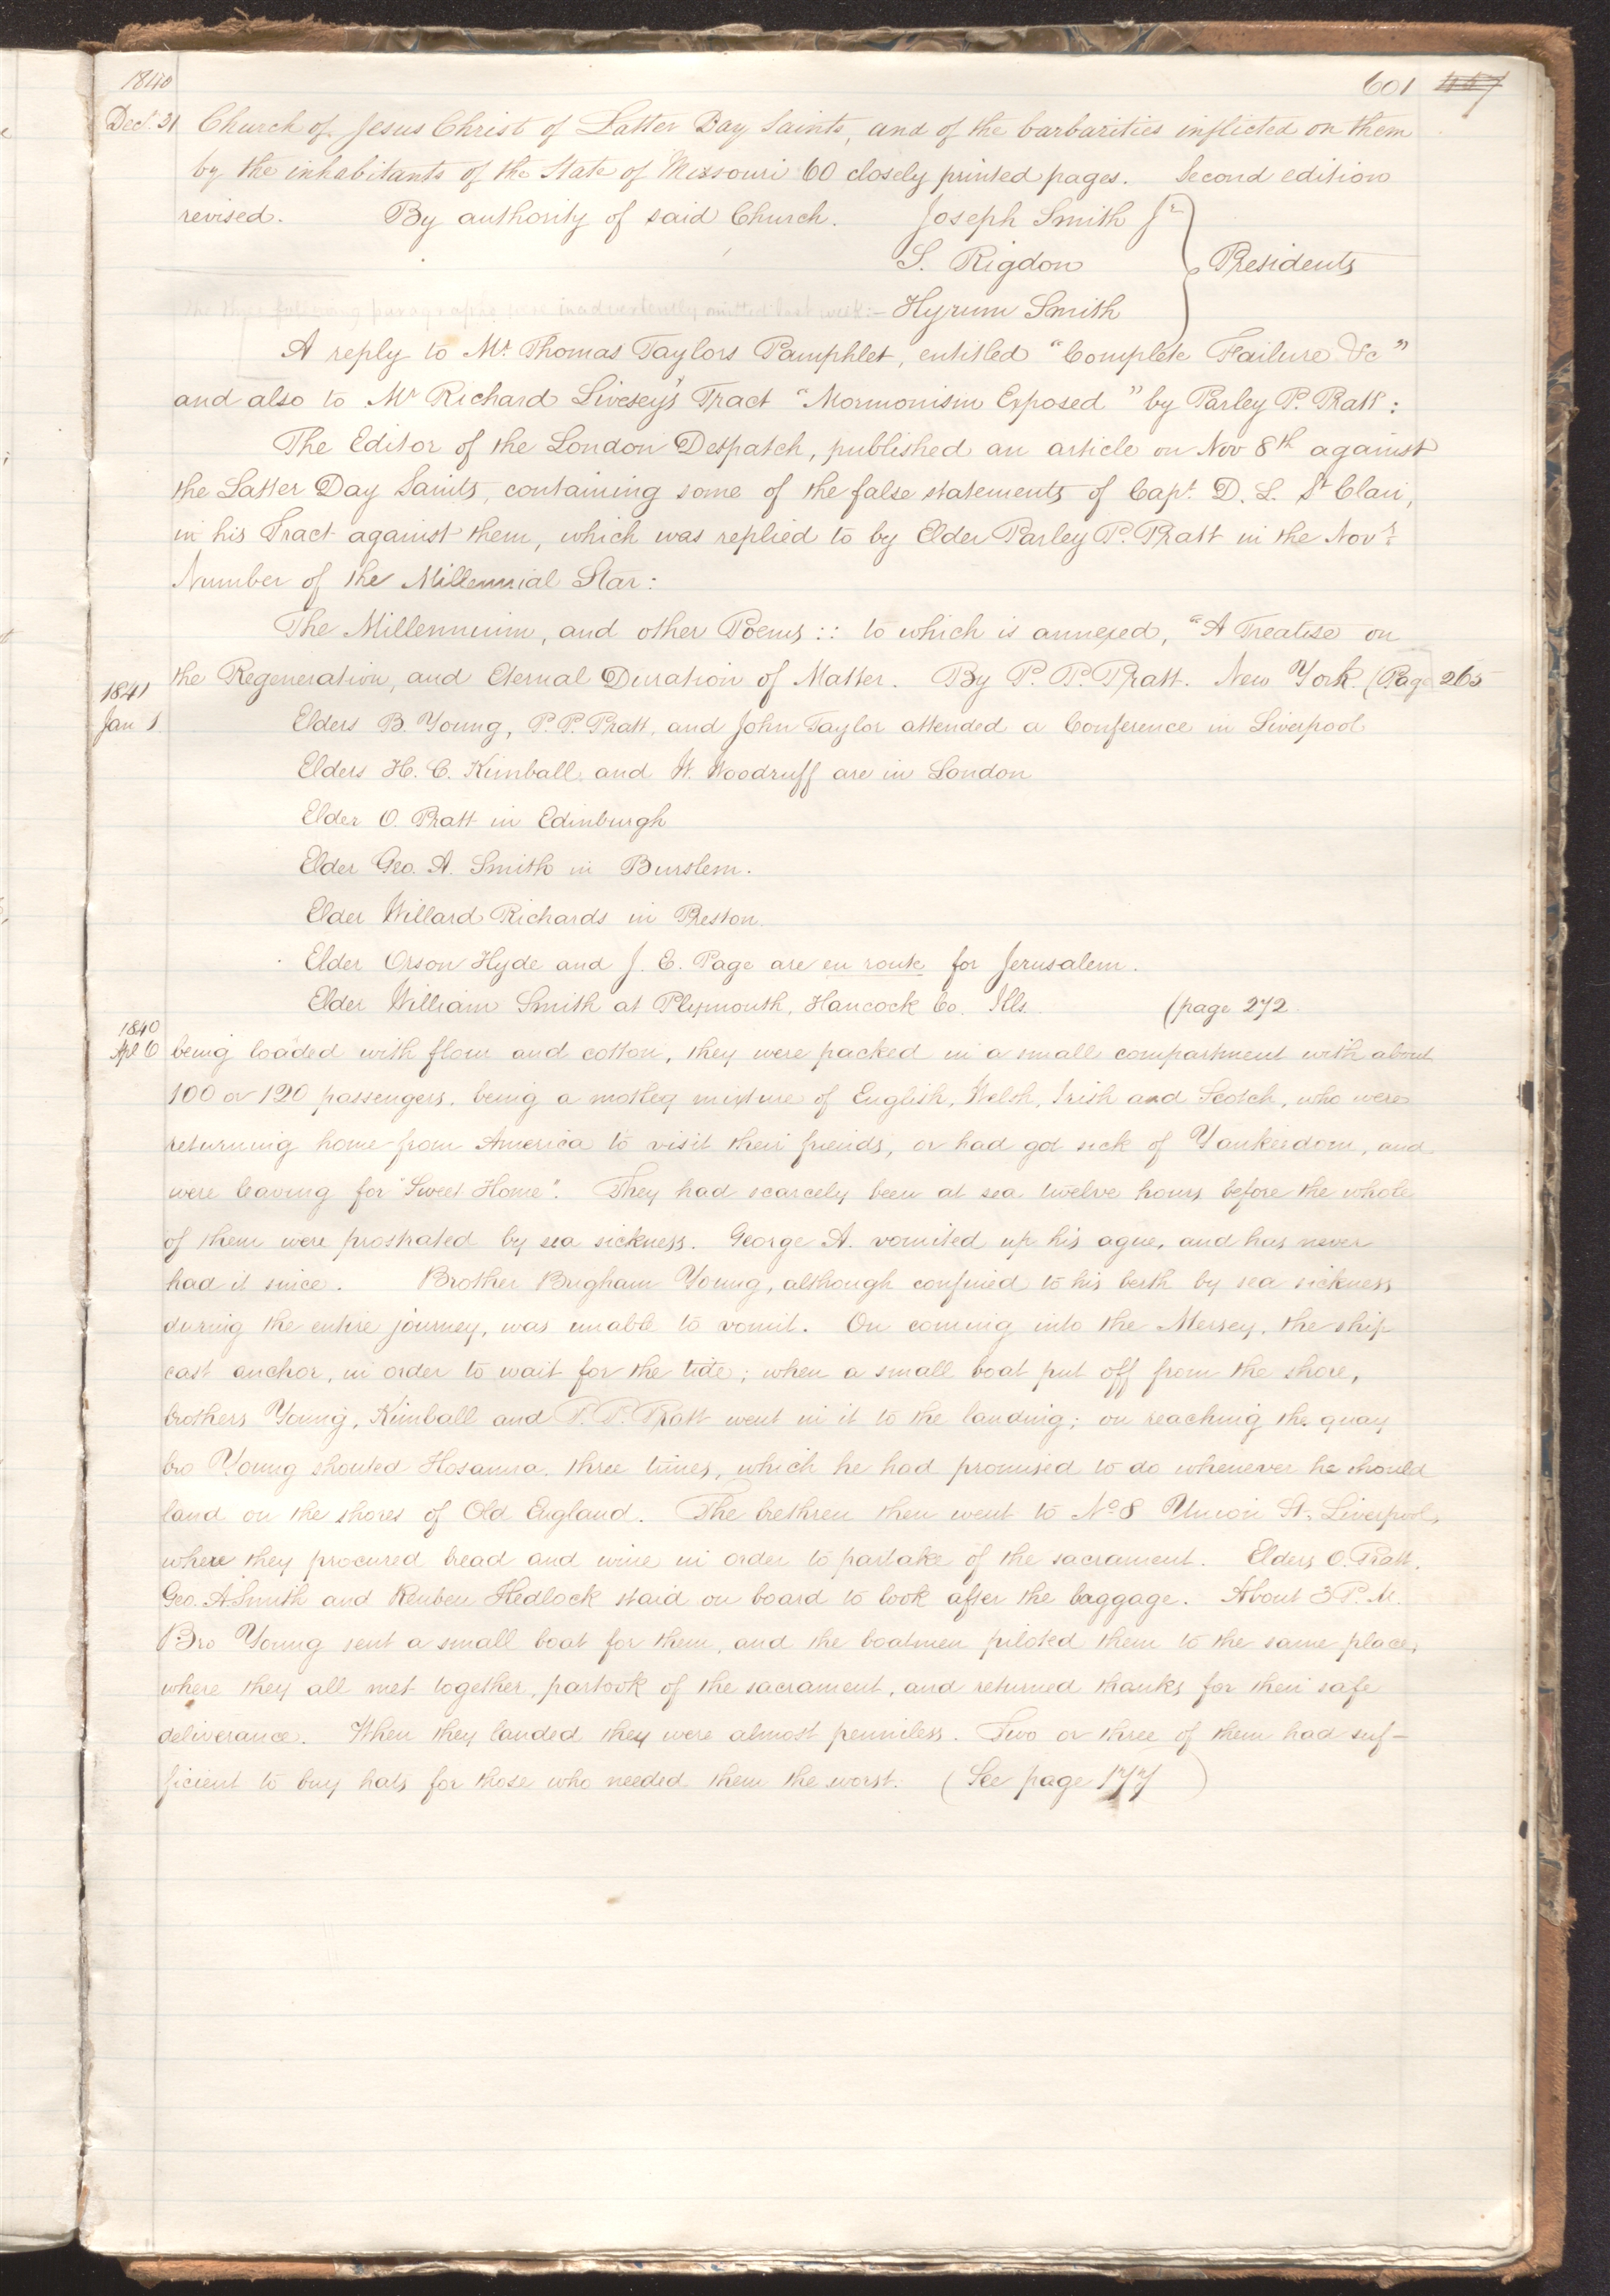 1840
601 447
Decr. 31 Church of Jesus Christ of Latter Day Saints, and of the barbarities inflicted on them
by the inhabitants of the State of Missouri 60 closely printed pages. Second edition
revised. By authority of said Church. Joseph Smith Jr.
S. Rigdon Presidents
the three following paragraphs were inadvertently omitted last week:- Hyrum Smith
A reply to Mr. Thomas Taylors Pamphlet, entitled "Complete Failure &c"
and also to Mr Richard Livesey's Tract "Mormonism Exposed" by Parley P. Pratt:
The Editor of the London Despatch, published an article on Nov 8th against
the Latter Day Saints, containing some of the false statements of Capt. D. L. St Clair,
in his Tract against them, which was replied to by Elder Parley P. Pratt in the Novr.
Number of the Millennial Star:
The Millennium, and other Poems:: to which is annexed, "A Treatise on
the Regeneration, and Eternal Duration of Matter. By P. P. Pratt. New York. (Page 265
1841
Jan 1. Elders B. Young, P. P. Pratt, and John Taylor attended a Conference in Liverpool
Elders H. C. Kimball, and W. Woodruff are in London
Elder O. Pratt in Edinburgh
Elder Geo. A. Smith in Burslem.
Elder Willard Richards in Preston.
Elder Orson Hyde and J. E. Page are en route for Jerusalem.
Elder William Smith at Plymouth, Hancock Co. Ills. (page 272
1840
Apl 6 being loaded with flour and cotton, they were packed in a small compartment with about
100 or 120 passengers, being a motley mixture of English, Welsh, Irish and Scotch, who were
returning home from America to visit their friends, or had got sick of Yankeedom, and
were leaving for "Sweet Home". They had scarcely been at sea twelve hours before the whole
of them were prostrated by sea sickness. George A. vomited up his ague, and has never
had it since. Brother Brigham Young, although confined to his berth by sea sickness
during the entire journey, was unable to vomit. On coming into the Mersey, the ship
cast anchor, in order to wait for the tide; when a small boat put off from the shore,
brothers Young, Kimball and P. P. Pratt went in it to the landing; on reaching the quay
bro Young shouted Hosanna. three times, which he had promised to do whenever he should
land on the shores of Old England. The brethren then went to No. 8 Union St, Liverpool,
where they procured bread and wine in order to partake of the sacrament. Elders O. Pratt,
Geo. A Smith and Reuben Hedlock staid on board to look after the baggage. About 3 P. M.
Bro Young sent a small boat for them, and the boatmen piloted them to the same place,
where they all met together, partook of the sacrament, and returned thanks for their safe
deliverance. When they landed they were almost penniless. Two or three of them had suf-
ficient to buy hats for those who needed them the worst. (See page 177)